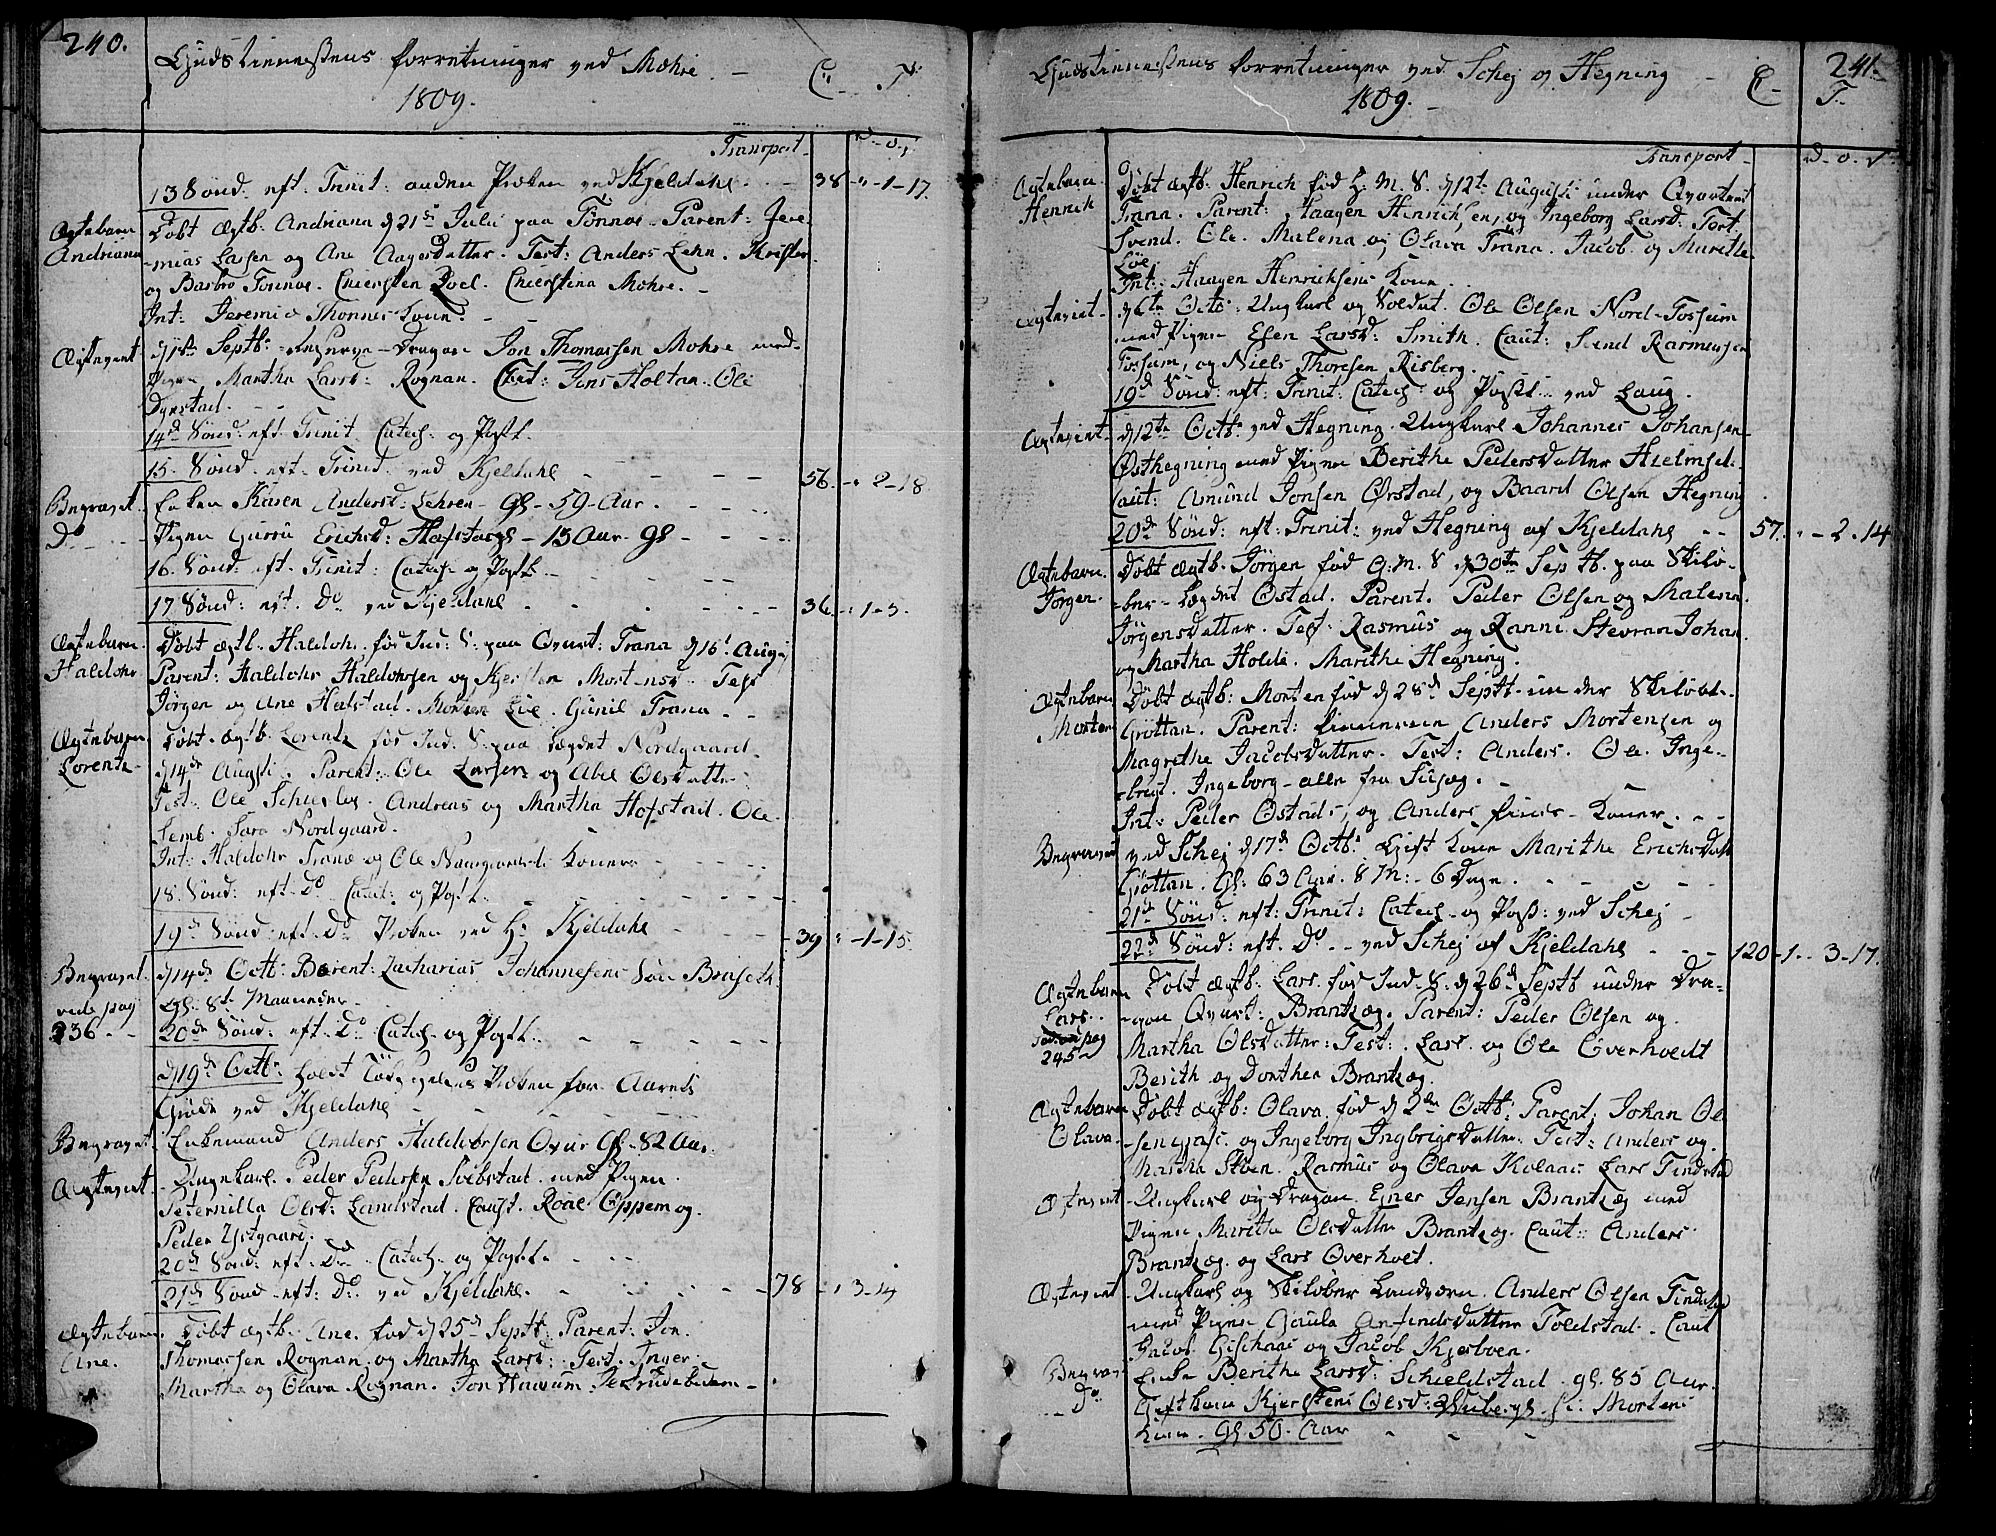 240.
Gudstienestens Forretninger ved Mæhre. - C: T:
1809.
Transport - D - o - s
13 Sønd. eft. Trinit: anden Præken ved Kjeldahl - 38 - " - 1 - 17.
Ægtebarn Andriana
Døbt Ægtb. Andriana d 21st Julii paa Tønnøe. Parent: Jere-
-mias Larsen og Ane Aagesdatter. Test: Anders Lehn. Kristen
og Barbro Tønnøe. Chiersten Roel. Chierstina Mæhre. -
Int: Jeremia Thonnes Kone. -
Ægteviet
d 1ste Septb: Dragon Jon Thomassen Mæhre med
Pigen Martha Larsd: Rognan. Caut: Jens Holtan. Ole
Dyrstad.
14d Sønd: eft. Trinit. Catech. og Postt.
15. Sønd. eft. Trinit. ved Kjeldahl - 56. - " 2 - 18.
Begravet. Enken Karen Andersd: Lehren - Gl - 59 - Aar.
Do - Pigen Gurru Erichsd: Hafstorp - 13 Aar - Gl -
16. Sønd. eft. Trinit: Catech. og Postt.
17. Sønd: eft. Do ved Kjeldahl - 36. - " 1 - 3.
Ægtebarn. Haldohr
Døbt Ægtb. Haldohr. før Ind: S: paa Qvart: Trana d 16t Aug:
Parent: Haldohr Haldohrsen og Kjersten Mortensd. Test
Jørgen og Ane Halstad. Morten Lie. Gunil Trana. -
Ægtebarn. Lorents
Døbt. Ægtb. Lorents før Ind. S. paa Legdet Nordgaard
d 14de Augsti. Parent: Ole Larsen og Abel Olsdatter
Test: Ole Schierloe. Andreas og Martha Hofstad. Ole
Semb. Sara Nordgaard.
Int: Haldohr Trana og Ole Koner
18. Sønd: eft. Do Catech: og Postt.
19d Sønd: eft. Do Præken ved Hr Kjeldahl - 39 " - 1 - 15.
Begravet vide pag 236 -
d 14de Octb: Barent: Zacharias Johannesens Søn Bruseth
Gl: 8te Maaneder -
20de Sønd: eft. Do Catech. og Postt:
d 19de Octb: holdt Taksigelses Præken for Aarets
Grøde ved Kjeldahl -
Begravet. Enkemand Anders Haldorsen Qvar Gl - 82 Aar:
Ægteviet. Ungkarl. Peder Pedersen Solbstad med Pigen
Peternilla Olsd: Landstad. Caut. Roal Oppem og
Peder Ystgaard.
20d Sønd: eft. Do Catech. og Postt.
21d Sønd. eft: Do ved Kjeldahl. - 78 - " 3 - 14
Ægtebarn. Ane.
Døbt Ægtb. Ane. fød d 25d Septb: Parent: Jon
Thomassen Rognan. og Martha Larsd: Test. Inger
Martha og Olava Rognan. Jon
241.
Gudstienestens Forretninger ved Schej og Hegning - C - T -
1809. -
Transport - D - o - s
Ægtebarn. Henrich
Døbt Ægtb. Henrich fød H: M. S. d 12te Augusti under Qvarteret
Trana. Parent: Haagen Hinrichsen, og Ingeborg Larsd. Test.
Svend. Ole. Malena og Olava Trana. Jacob og Marithe
Løe.
Int: Haagen Henrichsens Kone.
Ægteviet. d 6te Octb: Ungkarl og Soldat. Ole Olsen Nord-Fossum
med Pigen Elen Larsd: Smith. Caut: Svend Rasmussen
Fossum, og Niels Thoresen Risberg.
19d Sønd: eft. Trinit: Catech. og Postt. ved Laug.
Ægteviet. d 12te Octb: ved Hegning. Ungkarl Johannes Johansen
Østhegning med Pigen Berithe Pedersdatter Hielmsel.
Caut: Amund Jonsen Ørstad, og Baard Olsen Hegning.
20de Sønd: eft: Trinit: ved Hegning af Kjeldahl - 57. " - 2 - 14
Ægtebarn. Jørgen.
Døbt Ægtb. Jørgen fød H: M. S d 30te Septb. paa Skilø-
-ber - Legdet Østad. Parent. Peder Olsen og Malena
Jørgensdatter. Test: Rasmus og Ranni Stevran Johan
og Martha Holde. Marithe Hegning.
Ægtebarn Morten
Døbt Ægtb: Morten fød d 28d Septb. under Skilobr.
Grøttan. Parent: Anders Mortensen og
Magrethe Jacobsdatter. Test: Anders. Ole. Inge-
-brigt. Ingeborg - alle fra
Int: Peder Østads, og Anders Koner. -
Begravet ved Schej d 17d Octb: Gift Kone Marithe Erichsdatt
Grøttan. Gl: 63 Aar. 8 M: - 6 Dage.
21de Sønd: eft: Trinit: Catech. og Post: ved Schej -
22d Sønd: eft. Do - ved Schej af Kjeldahl - 120 - 1 - 3 - 17.
Ægtebarn Lars. pag 245
Døbt Ægtb: Lars. før Ind. S. d 26d Septb under Dra-
-gon Qvart: Brantzæg. Parent: Peder Olsen og
Martha Olsdatter: Test: Lars. og Ole Overhoedt
Berith og Dorthea Brantzæg.
Ægtebarn Olava.
Døbt Ægtb: Olava. fød d 2de Octb: Parent: Johan Ol-
sen og Ingeborg Ingbrigsdatter. Test: Anders og
Martha Støen. Rasmus og Olava Kolaas Lars Tindstad
Ægteviet - Ungkarl og Dragon Ejner Jensen Brantzæg med
Pigen Maritha Olsdatter Brantzæg. Caut: Anders
Brantzæg. og Lars Overhoet.
Ægteviet - Ungkarl og Skilober Landværn. Anders Olsen Tindstad
med Pigen Gaula Arfindsdatter Foldstad. Caut
Jacob. og Jacob Kjerboen.
Begrav: Berithe Larsd: Schieldstad. gl. 85 Aar.
Do Gift Kone Kjersten Olsd: Mortens
Kone. Gl. 50. Aar